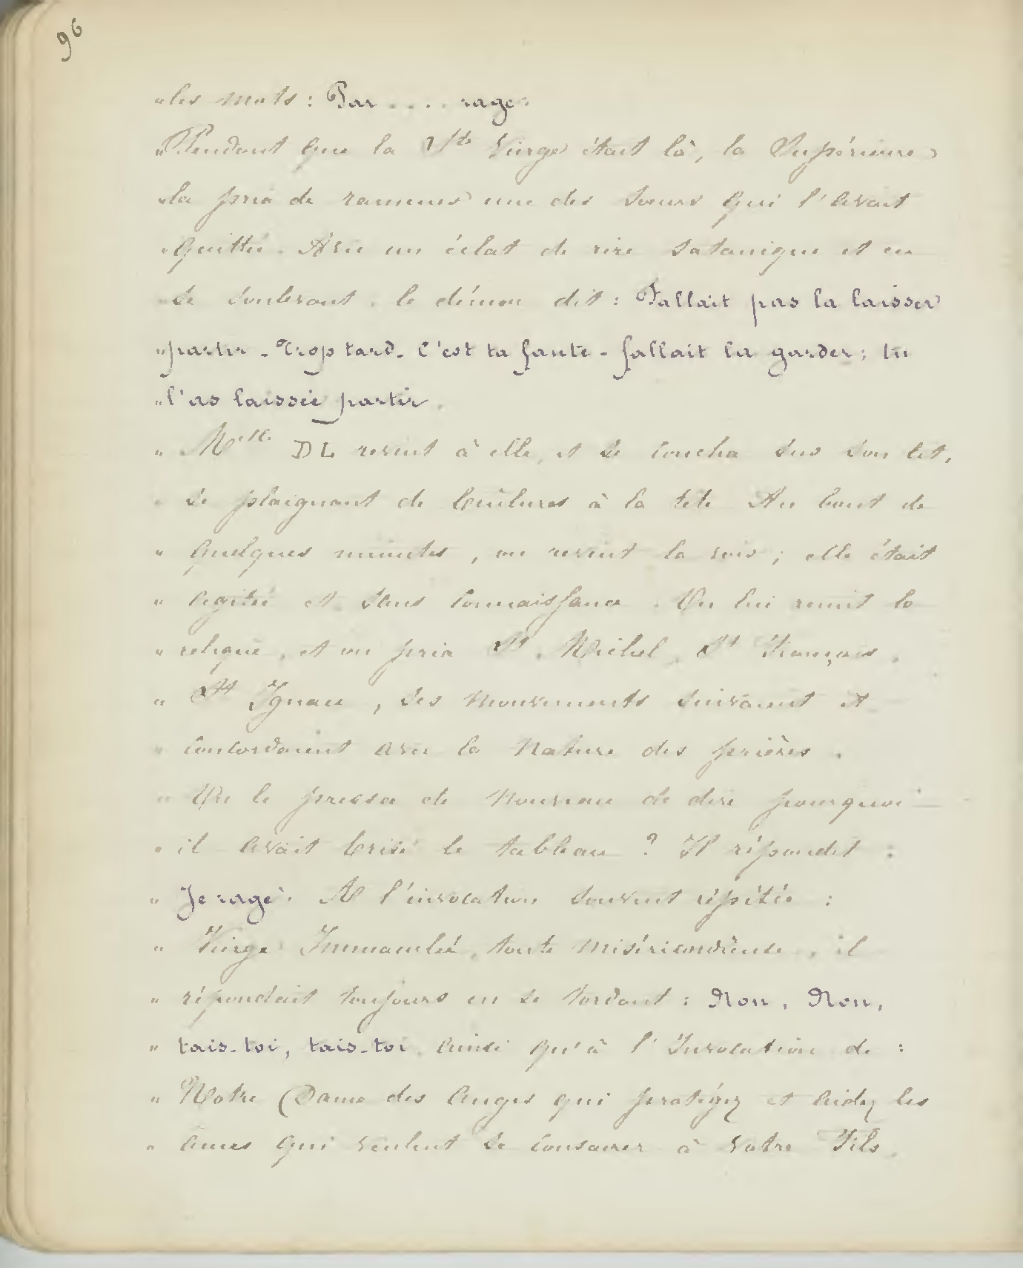 96
"les mots : Par .... rage.
"Pendant que la Ste Vierge était là, la Supérieure
"la pria de ramener une des soeurs qui l'avait
"quittée. Avec un éclat de rire satanique et en
"se soulevant, le démon dit : Fallait pas la laisser
"partir - Trop tard - C'est ta faute - fallait la garder ; tu
"l'as laissée partir.
" Melle DL revint à elle, et se coucha sur son lit,
" se plaignant de brûlures à la tête. Au bout de
" quelques minutes, on revint la voir ; elle était
" agitée et sans connaissance. On lui remit la
" relique, et on pria St Michel, St François,
" St Ignace, ses mouvements suivaient et
" concordaient avec la nature des prières.
" On le pressa de nouveau de dire pourquoi
" il avait brisé le tableau ? Il répondit :
" Je rage. A l'invocation souvent répétée :
" Vierge Immaculée, toute miséricordieuse, il
" répondait toujours en se tordant : Non, Non,
" tais-toi, tais-toi, ainsi qu'à l'Invocation de :
" Notre Dame des Anges qui protégez et aidez les
" âmes qui veulent se consacrer à votre Fils.